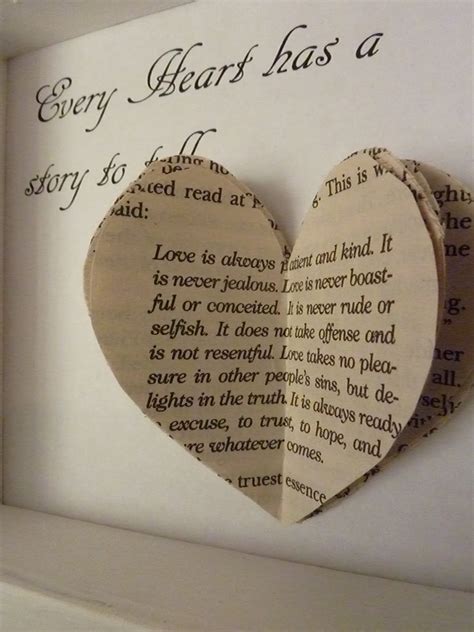 Every Heart has a
story to tell
ing ho
ted read at
aid:
Love is always patient and kind. It
is never jealous. Love is never boast-
ful or conceited. It is never rude or
selfish. It does not take offense and
is not resentful. Love takes no plea-
sure in other people's sins, but de-
lights in the truth. It is always ready
excuse, to trust, to hope, and
re whatever comes.
truest essence
g. This is w
her
all.
self